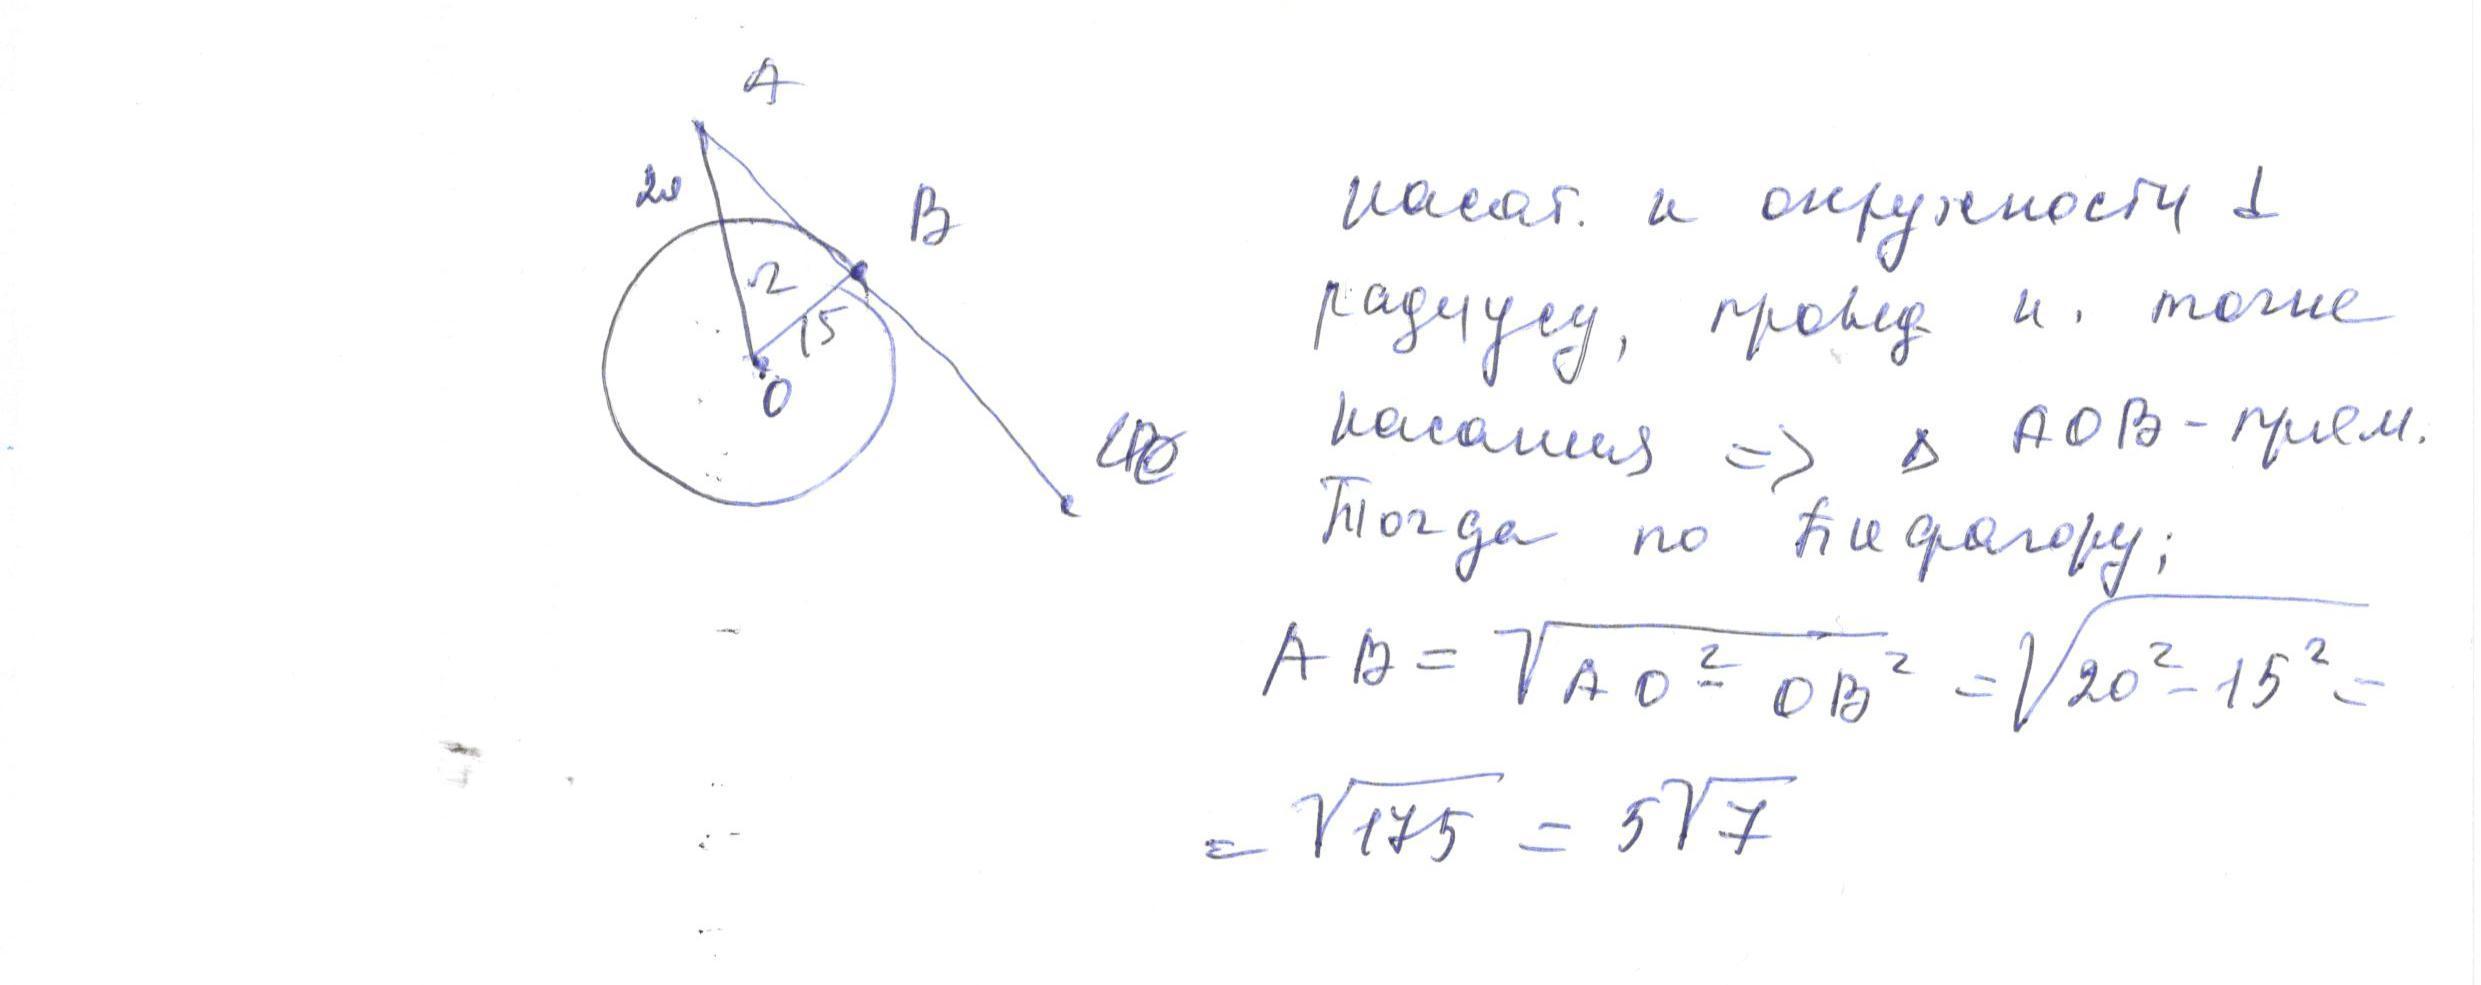 A
20
B
r
15
O
касат. к окружности ⊥
радиусу, провед к. точке
касания => △ AOB - прям.
Тогда по Пифагору;
AB = √(AO² - OB²) = √(20² - 15²) =
= √175 = 5√7